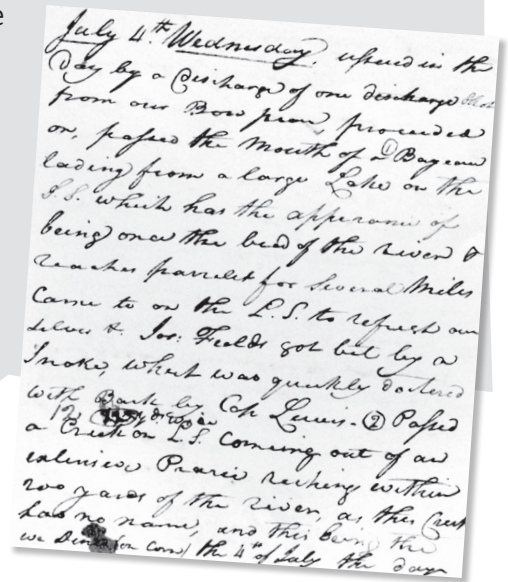 e
July 4th Wednesday, ussered in the
Day by a discharge of one discharge shot
from our Bow piece, proceeded
on, passed the mouth of a (1) Bayeau
lading from a large Lake on the
S.S. which has the apperance of
being once the bead of the river &
reaches parrelel for Several Miles
Came to on the L.S. to refresh our
selves &. Jos: Fields got bit by a
Snake, which was quickly doctered
with Bark by Cap Lewis. (2) Passed
a Creek on L.S. Comeing out of an
12 yds wide
extensive Prarie reching within
200 yards of the river, as this Creek
has no name, and this being the
we Dine (on corn) the 4th of July the day